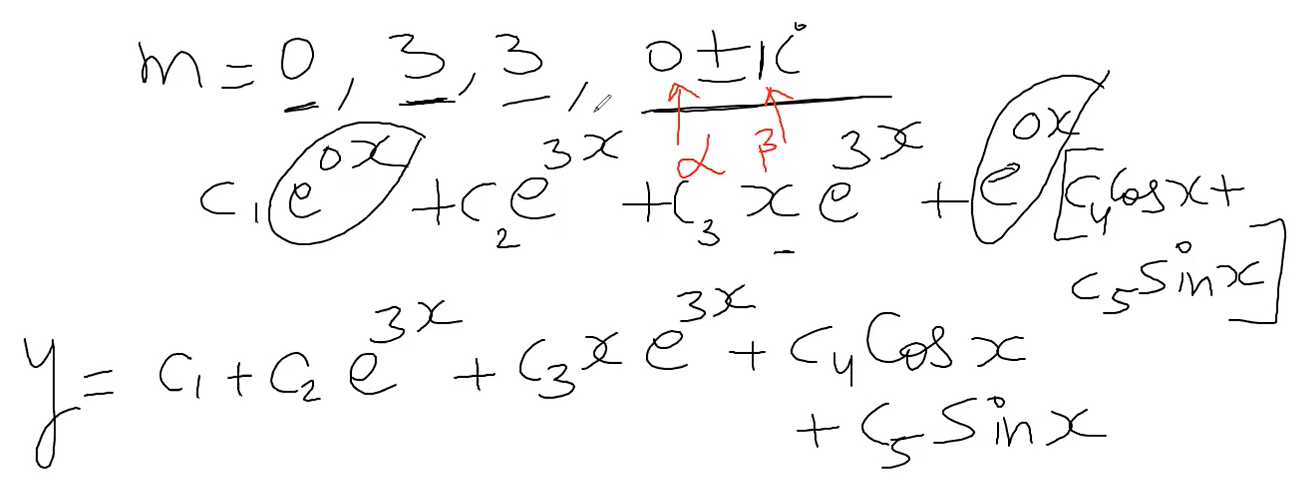 m = 0, 3, 3, 0 ± 1i
α β
c₁e^{0x} + c₂e^{3x} + c₃xe^{3x} + e^{0x}[c₄cosx +
c₅sinx]
y = c₁ + c₂e^{3x} + c₃xe^{3x} + c₄cosx
+ c₅sinx